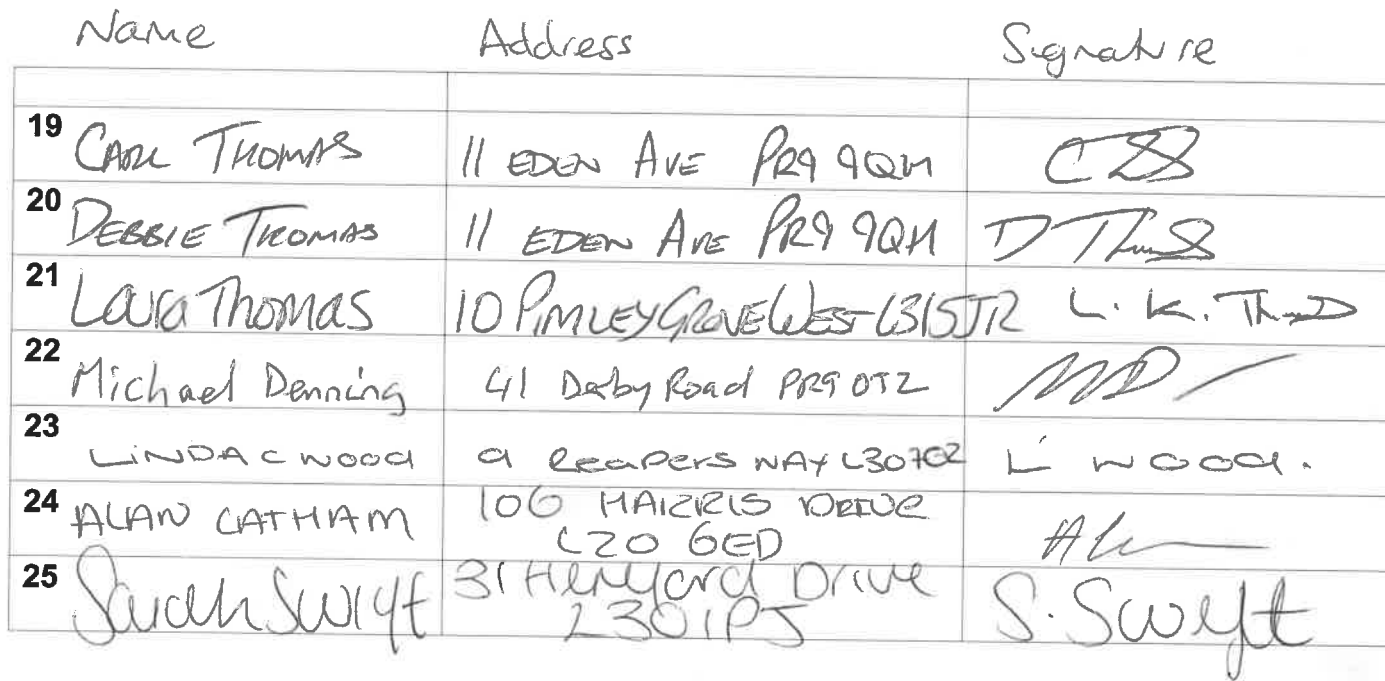 Name Address Signature
19 CARL THOMAS 11 EDEN AVE PR9 9QH
20 DEBBIE THOMAS 11 EDEN AVE PR9 9QH D
21 Laura Thomas 10 PIMLEY GROVE WEST L31 5JR L. K.
22 Michael Denning 41 Derby Road PR9 0TZ MD
23 LINDA C WOOd 9 Reapers WAY L30 7 L WOOd.
24 ALAN LATHAM 106 HARRIS DRIVE
L20 6ED
25 Sarah Swift 31 Drive S. Swift
L30 1PJ